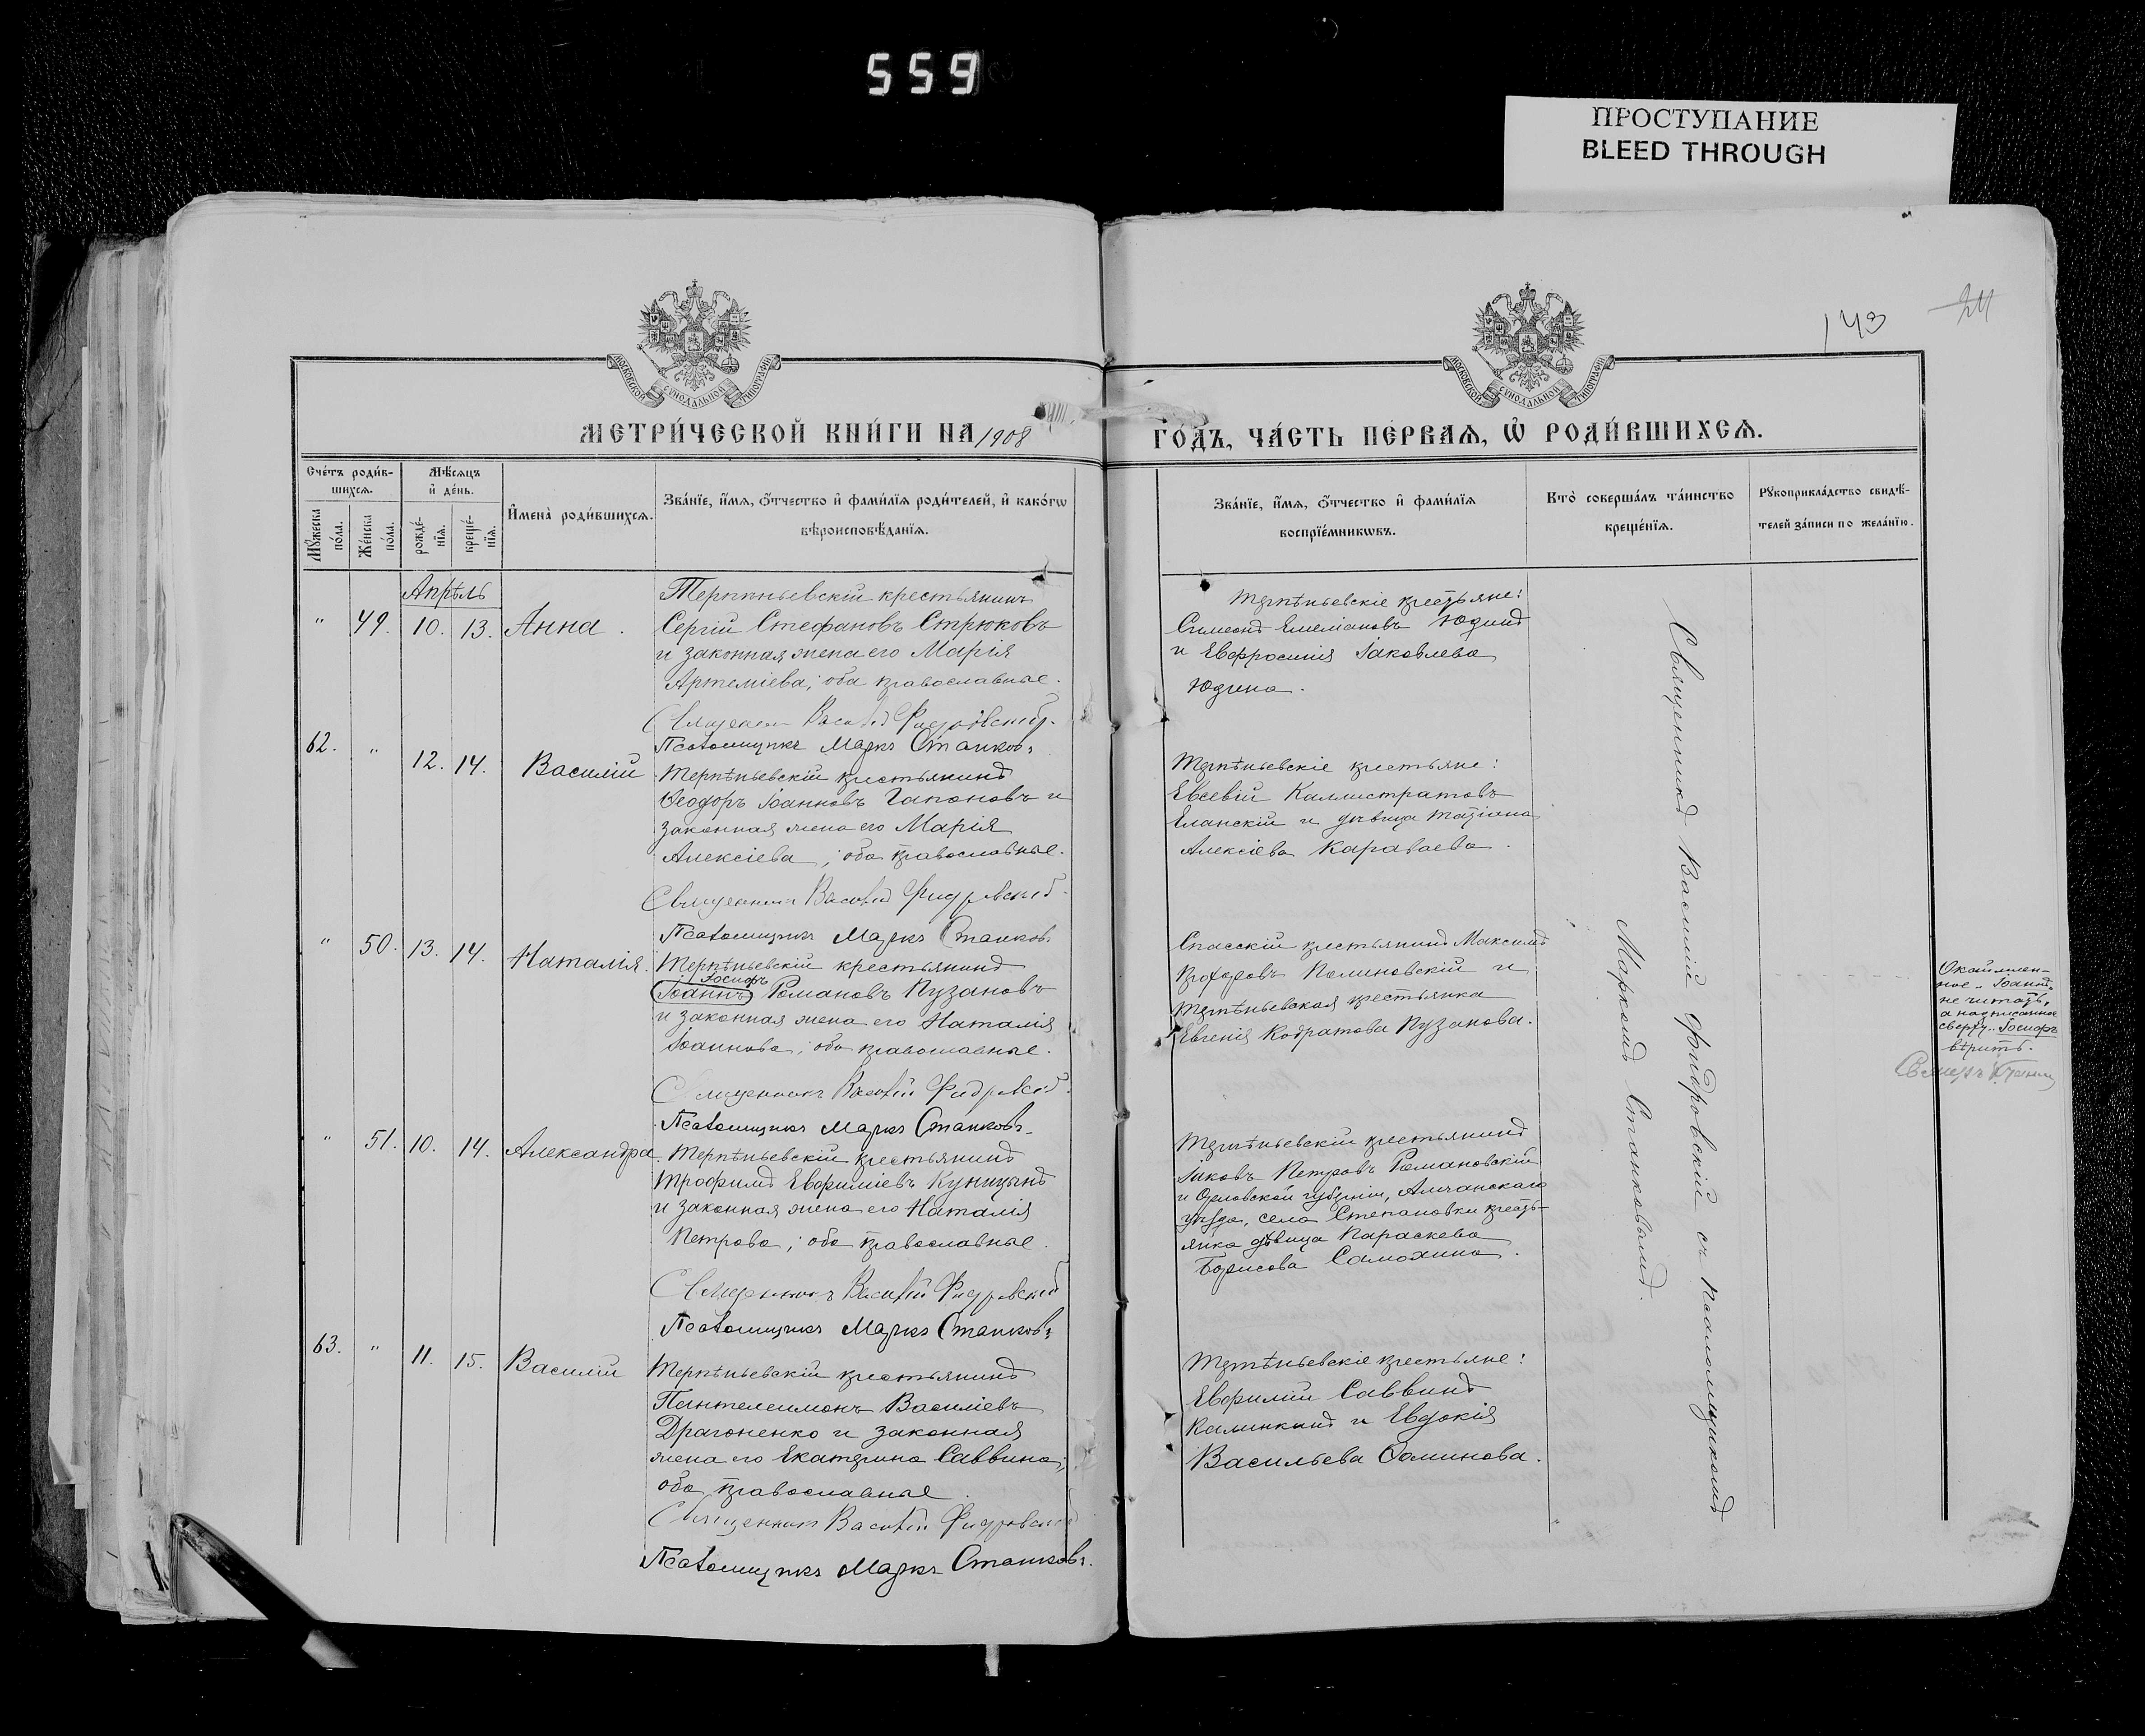 559
ПРОСТУПАНИЕ
BLEED THROUGH
143
24
МОСКОВСКОЙ СѴНОДАЛЬНОЙ ТИПОГРАФІИ
МОСКОВСКОЙ СѴНОДАЛЬНОЙ ТИПОГРАФІИ
МЕТРИ́ЧЕСКОЙ КНИ́ГИ НА 1908
ГО́ДЪ, ЧА́СТЬ ПЕ́РВАѦ, Ѡ҆ РОДИ́ВШИХСѦ.
Сче́тъ роди́в-
шихсѧ.
Мѣ́сѧцъ
и҆ де́нь.
Мꙋ́жеска
по́ла.
Же́нска
по́ла.
рожде́-
нїѧ.
креще́-
нїѧ.
И҆мена̀ роди́вшихсѧ.
Зва́нїе, и҆́мѧ, ѻ҆́тчество и҆ фами́лїѧ роди́телей, и҆ како́гѡ
вѣроисповѣ́данїѧ.
Зва́нїе, и҆́мѧ, ѻ҆́тчество и҆ фами́лїѧ
воспрїе́мникѡвъ.
Кто̀ соверша́лъ та́инство
креще́нїѧ.
Рꙋкоприкла́дство свидѣ́-
телей за́писи по жела́нїю.
Апрѣль
" 49. 10. 13. Анна.
Терпѣньевскій крестьянинъ
Сергій Стефановъ Стрюковъ
и законная жена его Марія
Артеміева; оба православные.
Священникъ Василій Фидровскій.
Псаломщикъ Маркъ Станковъ.
Терпѣньевскіе крестьяне:
Симеонъ Емеліановъ Юдинъ
и Евфросинія Іаковлева
Юдина.
62. " 12. 14. Василій
Терпѣньевскій крестьянинъ
Ѳеодоръ Іоанновъ Гапоновъ и
законная жена его Марія
Алексіева; оба православные.
Священникъ Василій Фидровскій.
Псаломщикъ Маркъ Станковъ.
Терпѣньевскіе крестьяне:
Евсевій Каллистратовъ
Еланскій и дѣвица Татіана
Алексіева Караваева.
" 50. 13. 14. Наталія.
Терпѣньевскій крестьянинъ
Іосифъ
Іоаннъ Романовъ Пузановъ
и законная жена его Наталія
Іоаннова; оба православные.
Священникъ Василій Фидровскій.
Псаломщикъ Маркъ Станковъ.
Спасскій крестьянинъ Максимъ
Прохоровъ Полиновскій и
Терпѣньевская крестьянка
Евгенія Кодратова Пузанова.
Окаймлен-
ное "Іоаннъ"
не читать,
а надписанное
сверху "Іосифъ
вѣрить.
" 51. 10. 14. Александра
Терпѣньевскій крестьянинъ
Трофимъ Евфиміевъ Куницынъ
и законная жена его Наталія
Петрова; оба православные.
Священникъ Василій Фидровскій
Псаломщикъ Маркъ Станковъ
Терпѣньевскій крестьянинъ
Іаковъ Петровъ Романовскій
и Орловской губерніи,
уѣзда, села Степановки кресть-
янка дѣвица Параскева
Борисова Самохина.
63. " 11. 15. Василій
Терпѣньевскій крестьянинъ
Пантелеимонъ Василіевъ
Драгоненко и законная
жена его Екатерина Саввина;
оба православные.
Священникъ Василій Фидровскій
Псаломщикъ Маркъ Станковъ.
Терпѣньевскіе крестьяне:
Евфимій Саввинъ
Калинкинъ и Евдокія
Васильева Ѳоминова.
Священникъ Василій Фидровскій съ псаломщикомъ
Маркомъ Станковымъ.